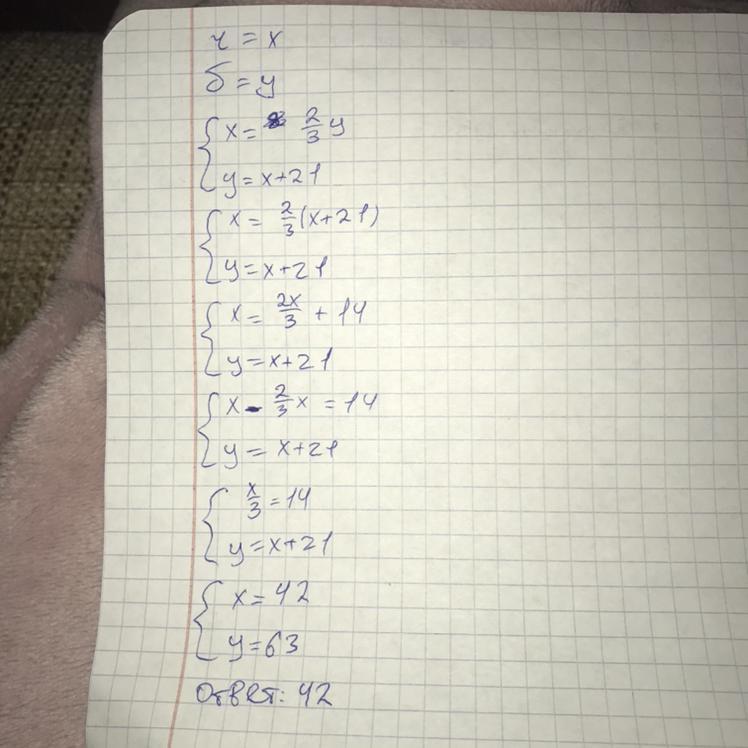 ч = x
б = y
x = 2/3 y
y = x+21
x = 2/3 (x+21)
y = x+21
x = 2x/3 + 14
y = x+21
x - 2/3 x = 14
y = x+21
x/3 = 14
y = x+21
x = 42
y = 63
Ответ: 42